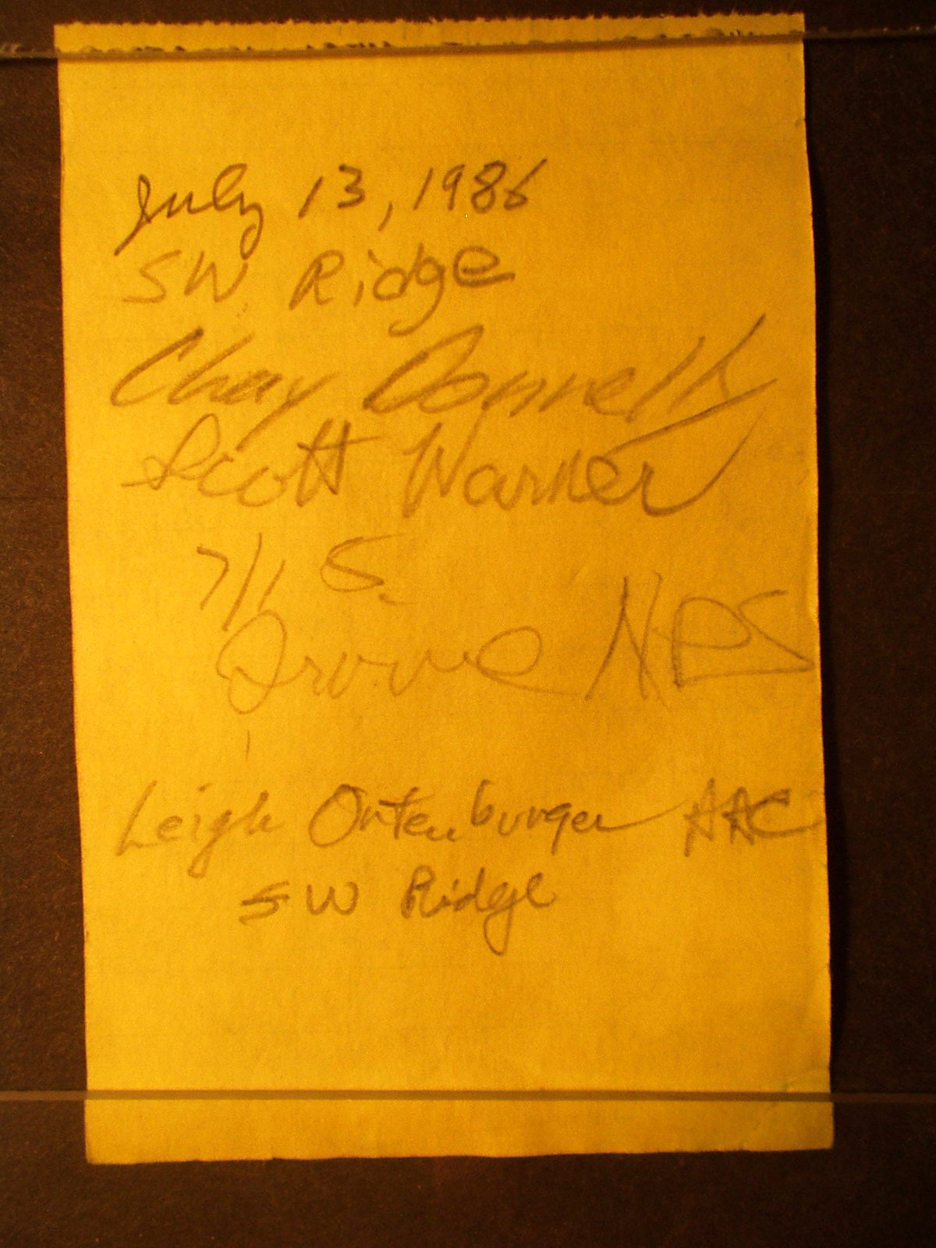 July 13, 1986
SW Ridge
Chay Donnelly
Scott Warner
7/1 S.
Irvine NPS
Leigh Ortenburger AAC
SW Ridge